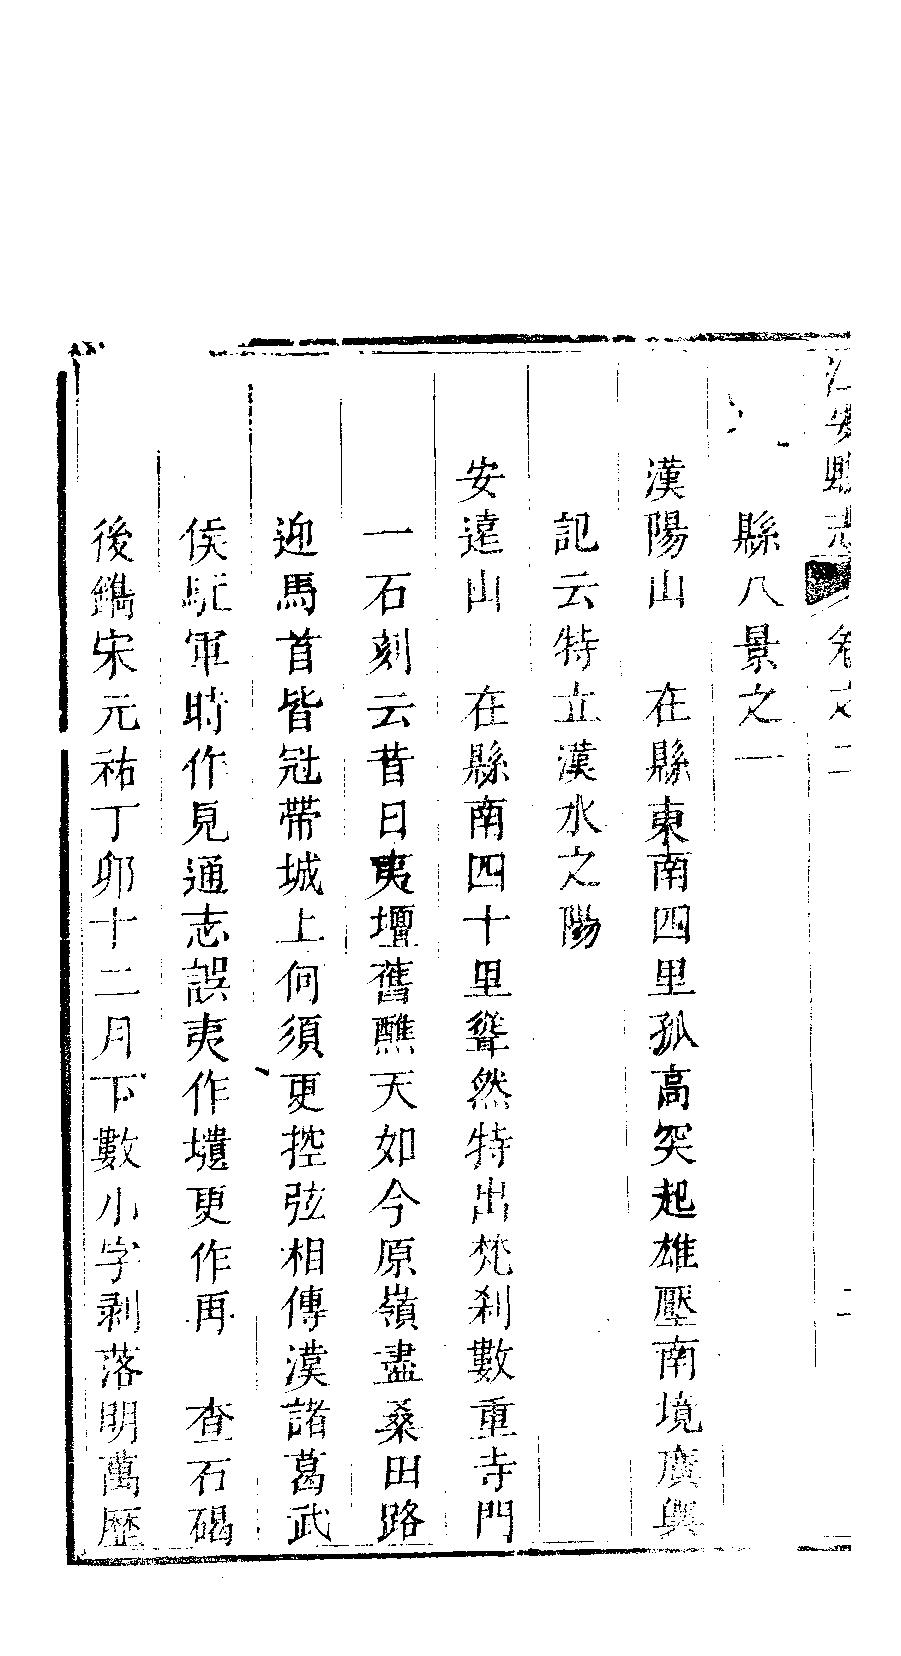 江安縣志 卷之二 二
縣八景之一
漢陽山 在縣東南四里孤高突起雄壓南境廣輿
記云特立漢水之陽
安遠山 在縣南四十里聳然特出梵刹數重寺門
一石刻云昔日夷壇舊醮天如今原嶺盡桑田路
迎馬首皆冠帶城上何須更控弦相傳漢諸葛武
侯駐軍時作見通志誤夷作壝更作再 查石碣
後鐫宋元祐丁卯十二月下數小字剥落明萬歷